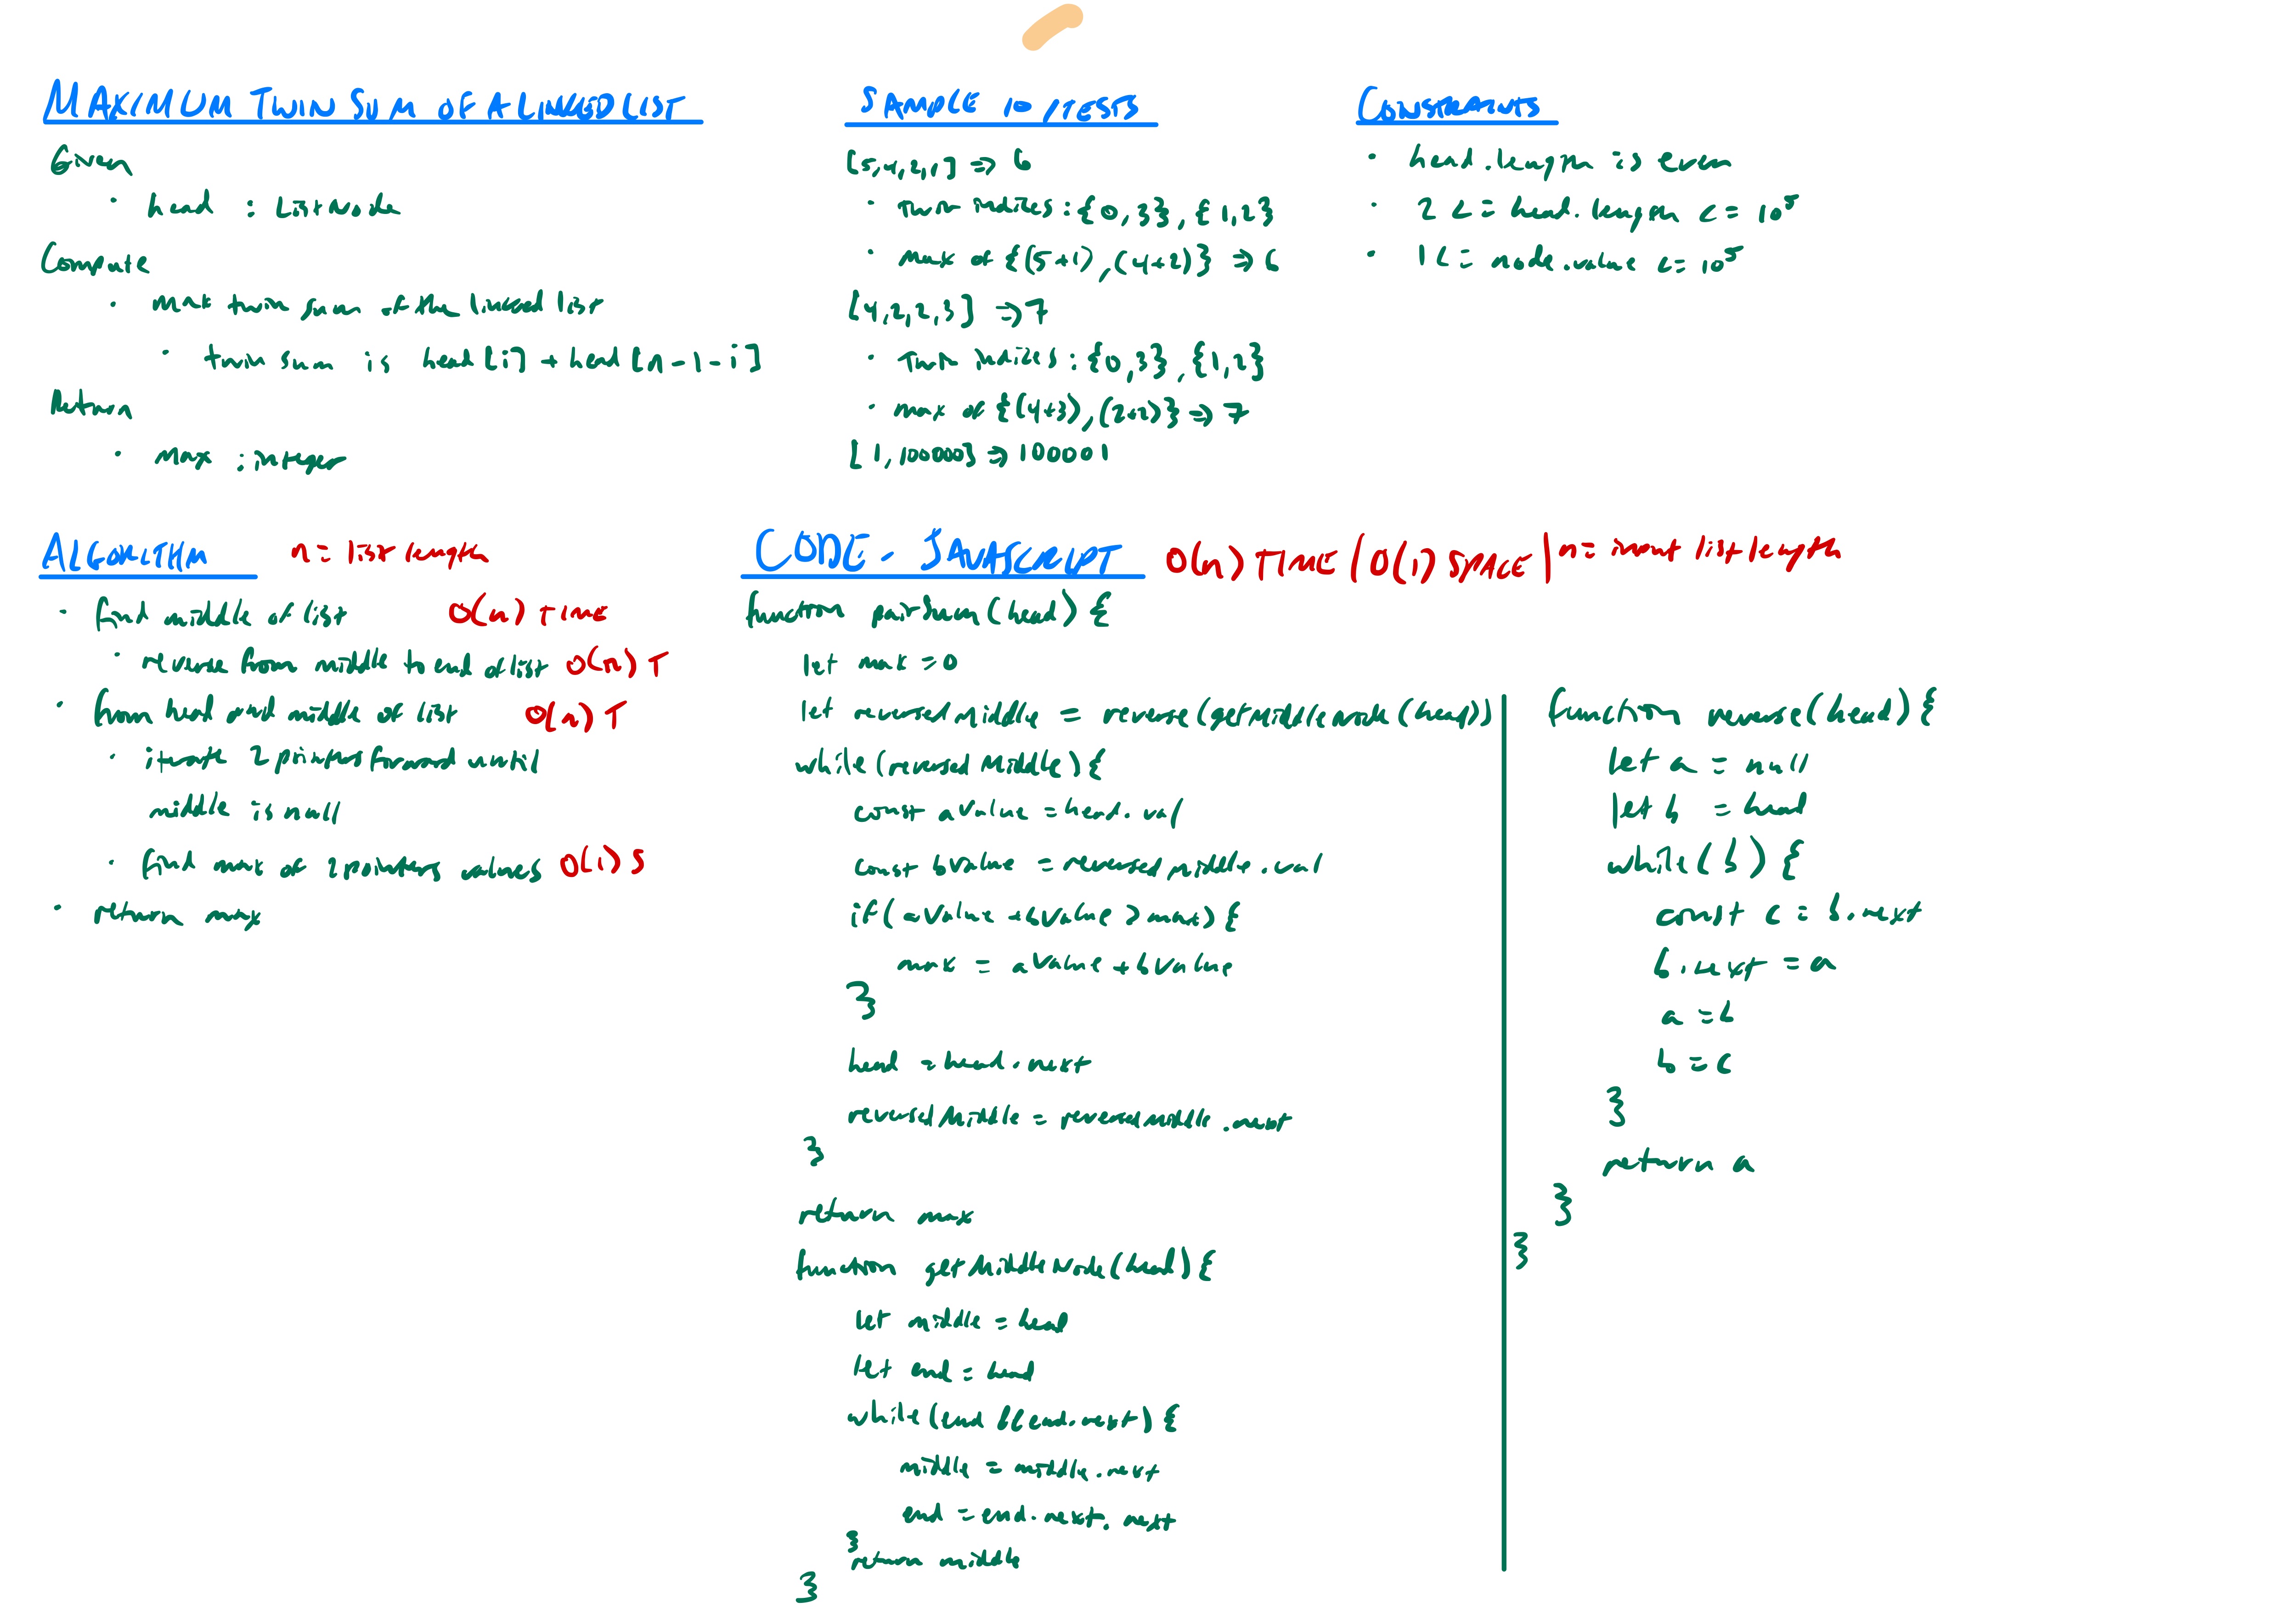 MAXIMUM TWIN SUM OF A LINKED LIST
Given
· head : ListNode
Compute
· max twin sum of the linked list
· twin sum is head[i] + head[n-1-i]
Return
· max : integer
SAMPLE IO/TESTS
[5,4,2,1] => 6
· twin indices : {0,3}, {1,2}
· max of {(5+1),(4+2)} => 6
[4,2,2,3] => 7
· Twin indices : {0,3}, {1,2}
· max of {(4+3),(2+2)} => 7
[1,100000] => 100001
CONSTRAINTS
· head.length is even
· 2 <= head.length <= 10^5
· 1 <= node.value <= 10^5
ALGORITHM n = list length
· find middle of list O(n) TIME
· reverse from middle to end of list O(n) T
· from head and middle of list O(n) T
· iterate 2 pointers forward until
middle is null
· find max of 2 pointers values O(1) S
· return max
CODE - JAVASCRIPT O(n) TIME / O(1) SPACE | n = input list length
function pairSum(head) {
let max = 0
let reversedMiddle = reverse(getMiddleNode(head))
while(reversedMiddle) {
const aValue = head.val
const bValue = reversedMiddle.val
if(aValue + bValue > max) {
max = aValue + bValue
}
head = head.next
reversedMiddle = reversedMiddle.next
}
return max
function getMiddleNode(head) {
let middle = head
let end = head
while(end && end.next) {
middle = middle.next
end = end.next.next
}
return middle
}
function reverse(head) {
let a = null
let b = head
while(b) {
const c = b.next
b.next = a
a = b
b = c
}
return a
}
}